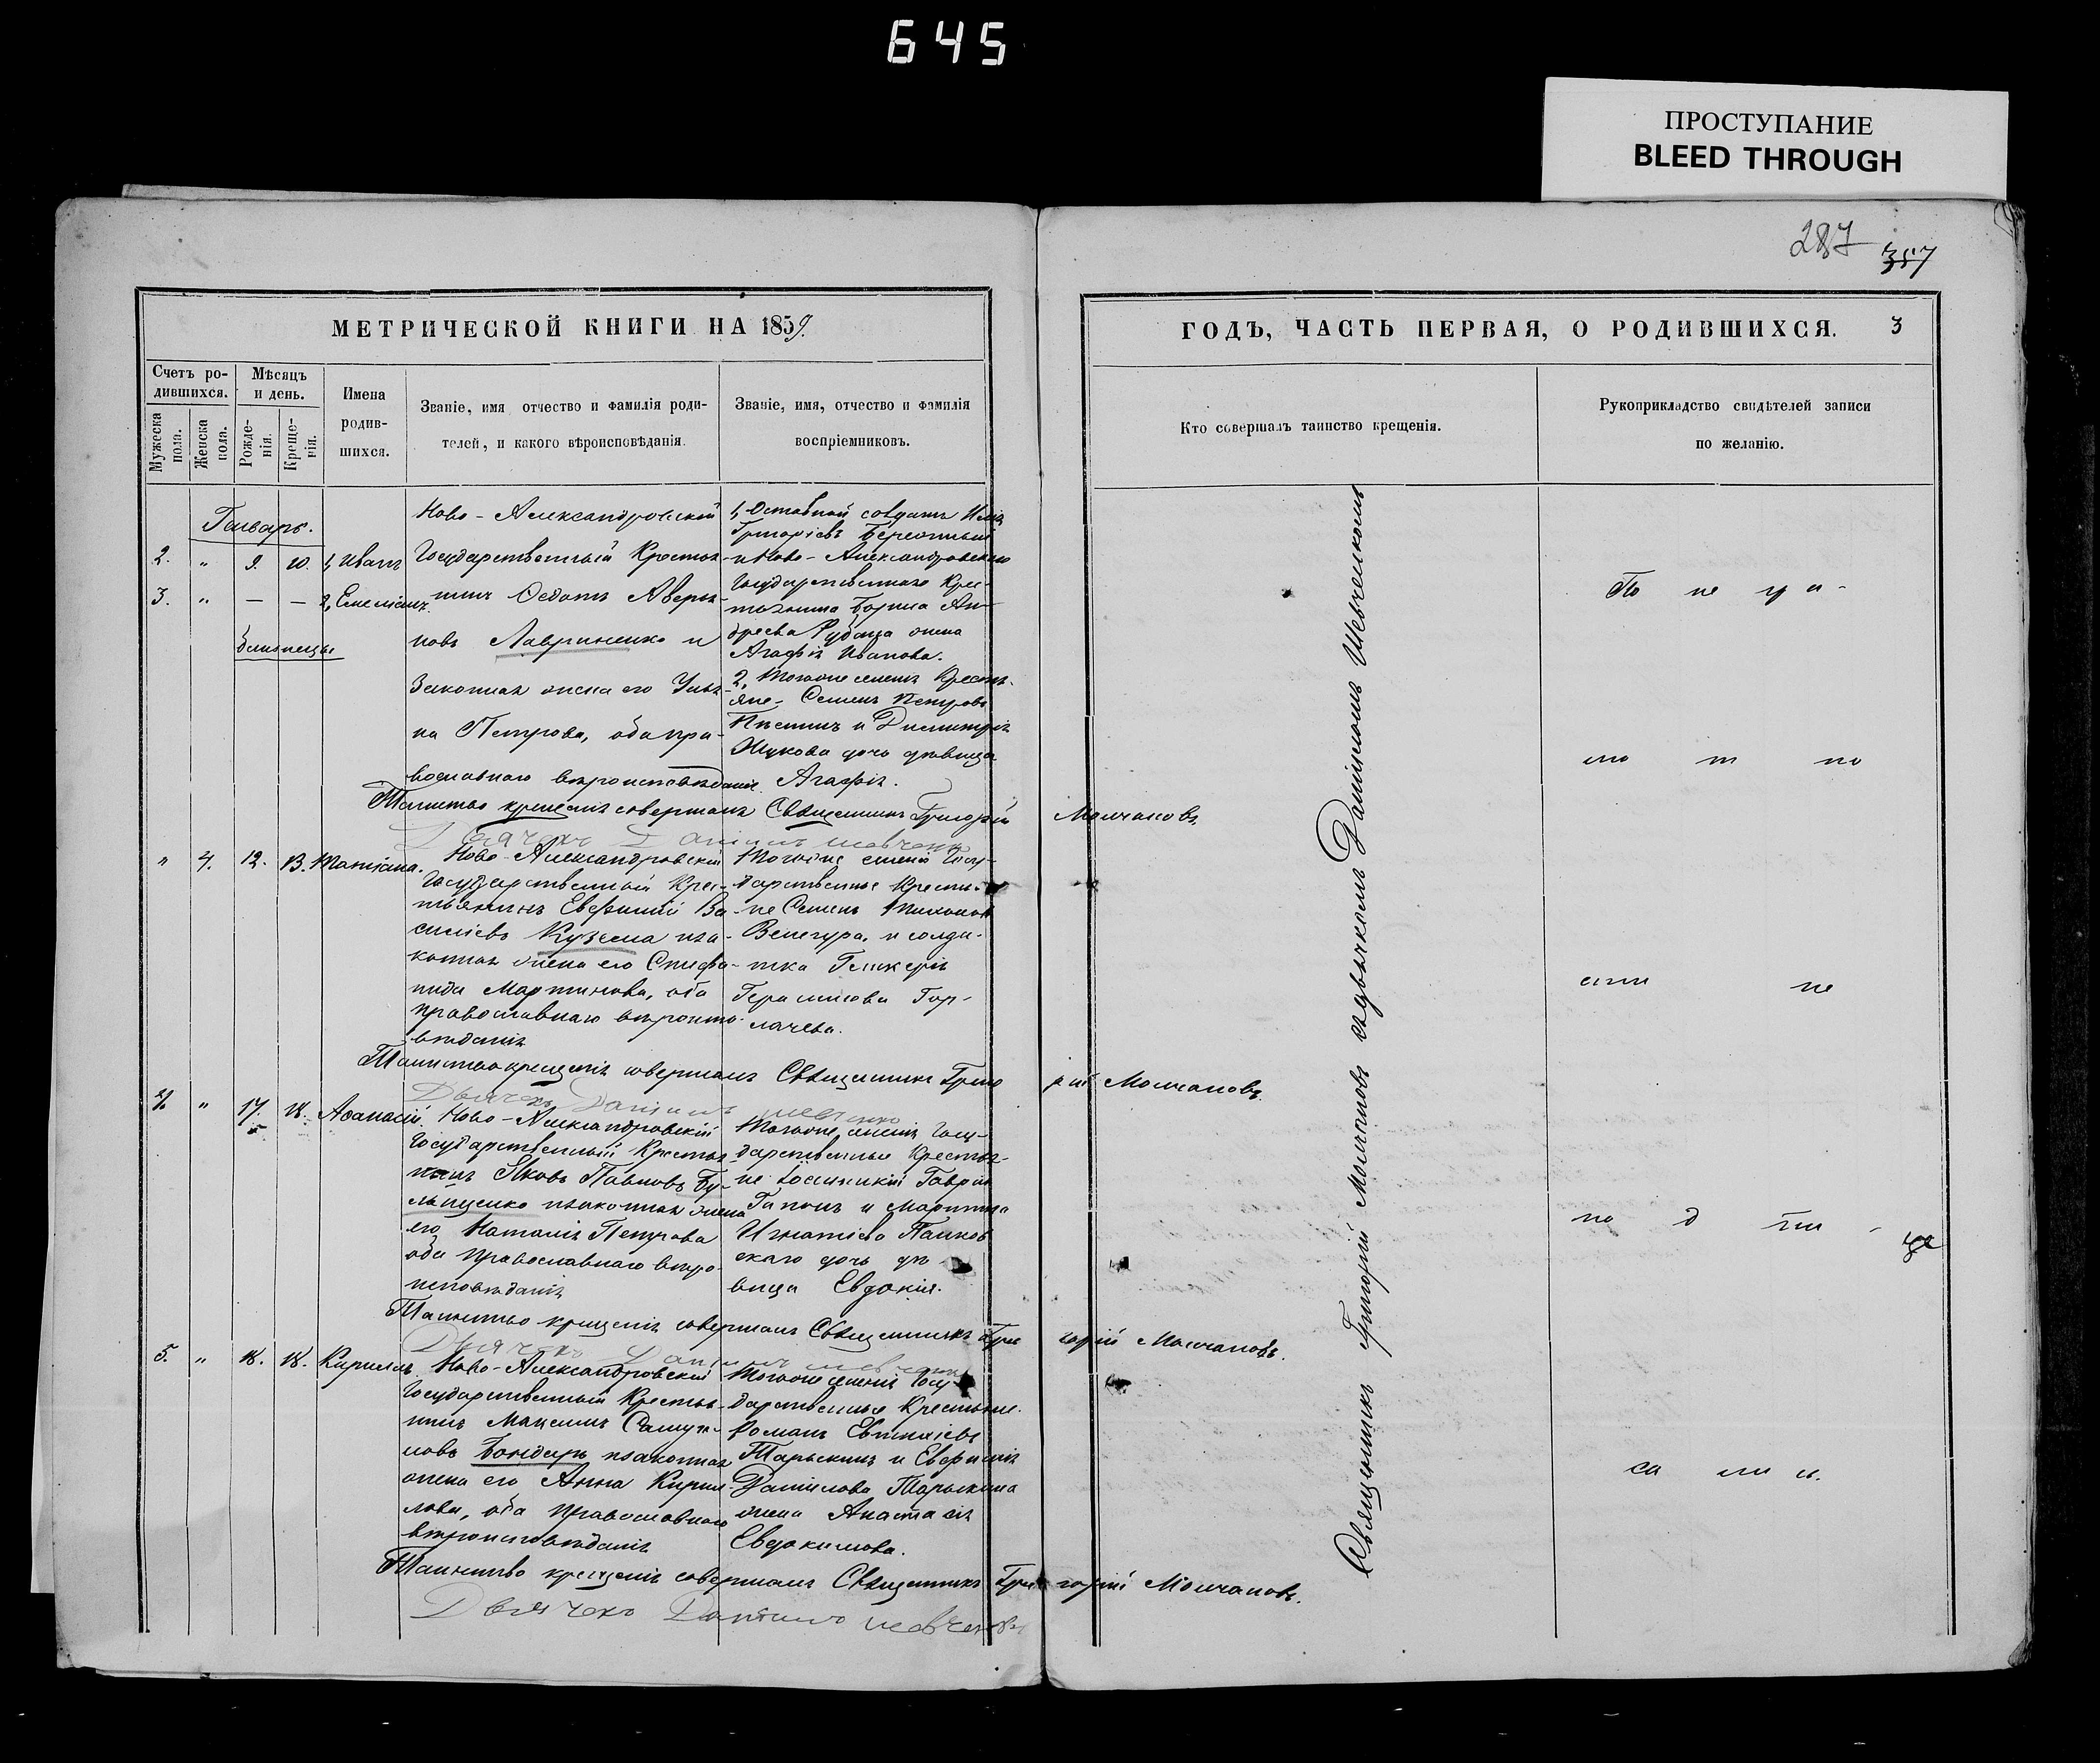 645
ПРОСТУПАНИЕ
BLEED THROUGH
287 357
МЕТРИЧЕСКОЙ КНИГИ НА 1859.
Счетъ ро-
дившихся.
Мужеска пола.
Женска пола.
Мѣсяцъ
и день.
Рожде-
нія.
Креще-
нія.
Имена
родив-
шихся.
Званіе, имя отчество и фамилія роди-
телей, и какого вѣроисповѣданія.
Званіе, имя, отчество и фамилія
воспріемниковъ.
Генварь.
2. " 9. 10. 1, Иванъ
3. " — — 2, Емеліанъ.
близнецы
Ново-Александровскій
Государственный Крестья-
нинъ Федотъ Аверья-
новъ Лавриненко и
Законная жена его Улья-
на Петрова, оба пра-
вославнаго вѣроисповѣданія
1, Отставной солдатъ
Григорьевъ
и Ново-Александровскаго
Государственнаго Крес-
тьянина Бориса Ан-
дреева жена
Агафія Иванова.
2, Тогоже селенія Крестья-
яне Семенъ Петровъ
и Димитрія
Жукова дочь дѣвица
Агафія.
Таинство крещенія совершалъ Священникъ Григорій Молчановъ.
Дьячекъ Даніилъ Шевченко
" 4. 12. 13. Татіана.
Ново-Александровскій
Государственный Крес-
тьянинъ Евфимій Ва-
силіевъ Куземa и за-
конная жена его Стефа-
нида Мартинова, оба
православнаго вѣроиспо-
вѣданія
Тогоже селенія Госу-
дарственные Крестья-
не Семенъ
Венгура, и солда-
тка Гликерія
Герасимова Гор-
лачева.
Таинство крещенія совершалъ Священникъ Григорій Молчановъ.
Дьячекъ Даніилъ Шевченко
4. " 17. 18. Афанасій.
Ново-Александровскій
Государственный Крестья-
нинъ Яковъ Павловъ Бу-
льпенко и законная жена
его Наталія Петрова
оба православнаго вѣро-
исповѣданія
Тогоже селенія Госу-
дарственные Крестья-
не Іоанникій
Гапонъ и Мартина
Игнатіева Панков-
скаго дочь дѣ-
вица Евдокія.
Таинство крещенія совершалъ Священникъ Григорій Молчановъ.
Дьячекъ Даніилъ Шевченко
5. " 18. 18. Кириллъ.
Ново-Александровскій
Государственный Крестья-
нинъ Максимъ Самуи-
ловъ Бондарь и законная
жена его Анна Кирил-
лова, оба Православнаго
вѣроисповѣданія
Тогоже селенія Госу-
дарственные Крестьяне
Романъ Евтихіевъ
Тарыкинъ и Евфимія
Данилова Тарыкина
жена Анастасія
Евдокимова.
Таинство крещенія совершалъ Священникъ Григорій Молчановъ.
Дьячекъ Даніилъ Шевченко
ГОДЪ, ЧАСТЬ ПЕРВАЯ, О РОДИВШИХСЯ. 3
Кто совершалъ таинство крещенія.
Рукоприкладство свидѣтелей записи
по желанію.
Священникъ Григорій Молчановъ съ дьячкомъ Даніиломъ Шевченкомъ
По не гра-
мо т но
сти не
по д пи - це
са ли сь.